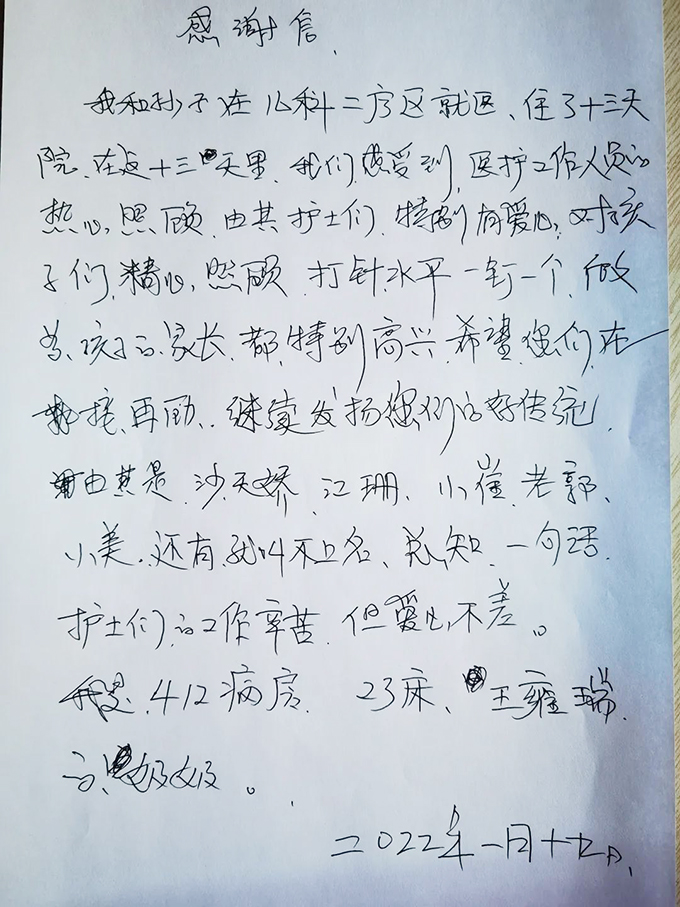 感谢信、
我和孙子在儿科二疗区就医、住了十三天
院、在这十三天里、我们感受到、医护工作人员的
热心、照顾、由其护士们、特别有爱心、对孩
子们、精心、照顾、打针、水平一针一个、做
为、孩子的家长、都、特别高兴、希望、您们、在
接、再励、继续发扬您们的好传统、
由其是、沙天娇、江珊、小崔、老郭、
小美、还有、我叫不上名、总知、一句话、
护士们的工作辛苦、但爱心、不差。
我是、412病房 23床、王雍瑞、
的、奶奶。
二〇22年一月十九日、